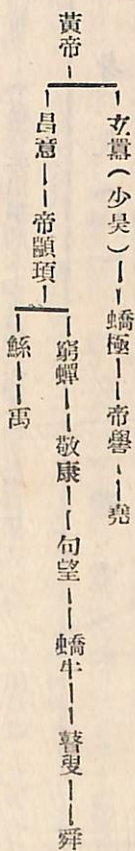 黃帝
玄囂(少昊)——蟜極——帝嚳——堯
昌意——帝顓頊
窮蟬——敬康——句望——蟜牛——瞽叟——舜
鯀——禹